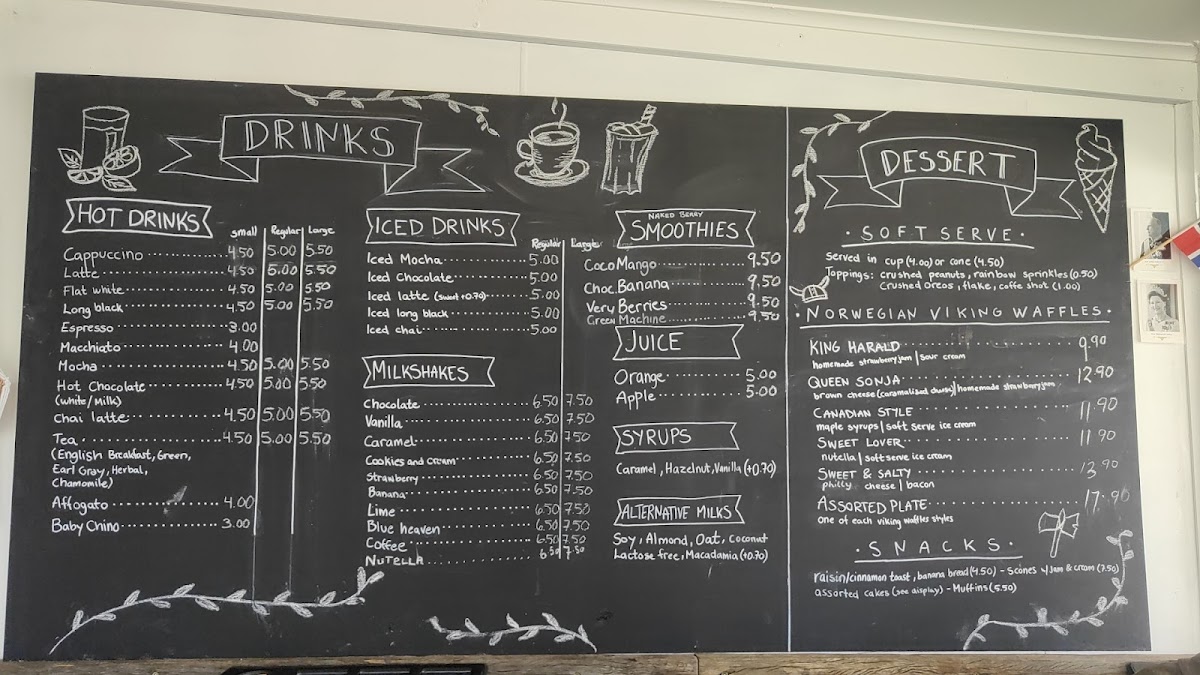 DRINKS
HOT DRINKS
small Regular Large
Cappuccino 4.50 5.00 5.50
Latte 4.50 5.00 5.50
Flat white 4.50 5.00 5.50
Long black 4.50 5.00 5.50
Espresso 3.00
Macchiato 4.00
Mocha 4.50 5.00 5.50
Hot Chocolate 4.50 5.00 5.50
(white/Milk)
Chai latte 4.50 5.00 5.50
Tea 4.50 5.00 5.50
(English Breakfast, Green,
Earl Gray, Herbal,
Chamomile)
Affogato 4.00
Baby Chino 3.00
ICED DRINKS
Regular Large
Iced Mocha 5.00
Iced Chocolate 5.00
Iced latte (sweet +0.70) 5.00
Iced long black 5.00
Iced chai 5.00
MILKSHAKES
Chocolate 6.50 7.50
Vanilla 6.50 7.50
Caramel 6.50 7.50
Cookies and cream 6.50 7.50
Strawberry 6.50 7.50
Banana 6.50 7.50
Lime 6.50 7.50
Blue heaven 6.50 7.50
Coffee 6.50 7.50
NUTELLA 6.50 7.50
NAKED BERRY
SMOOTHIES
Coco Mango 9.50
Choc Banana 9.50
Very Berries 9.50
Green Machine 9.50
JUICE
Orange 5.00
Apple 5.00
SYRUPS
Caramel, Hazelnut, Vanilla (+0.70)
ALTERNATIVE MILKS
Soy, Almond, Oat, Coconut
Lactose free, Macadamia (+0.70)
DESSERT
• SOFT SERVE •
Served in cup (4.00) or cone (4.50)
Toppings: crushed peanuts, rainbow sprinkles (0.50)
crushed oreos, flake, coffe shot (1.00)
• NORWEGIAN VIKING WAFFLES •
KING HARALD 9.90
homemade strawberry jam | sour cream
QUEEN SONJA 12.90
brown cheese (caramalised cheese) | homemade strawberry jam
CANADIAN STYLE 11.90
maple syrups | soft serve ice cream
SWEET LOVER 11.90
nutella | soft serve ice cream
SWEET & SALTY 13.90
philly cheese | bacon
ASSORTED PLATE 17.90
one of each viking waffles styles
• SNACKS •
raisin/cinnamon toast, banana bread (4.50) - Scones w/ Jam & cream (7.50)
assorted cakes (see display) - Muffins (5.50)